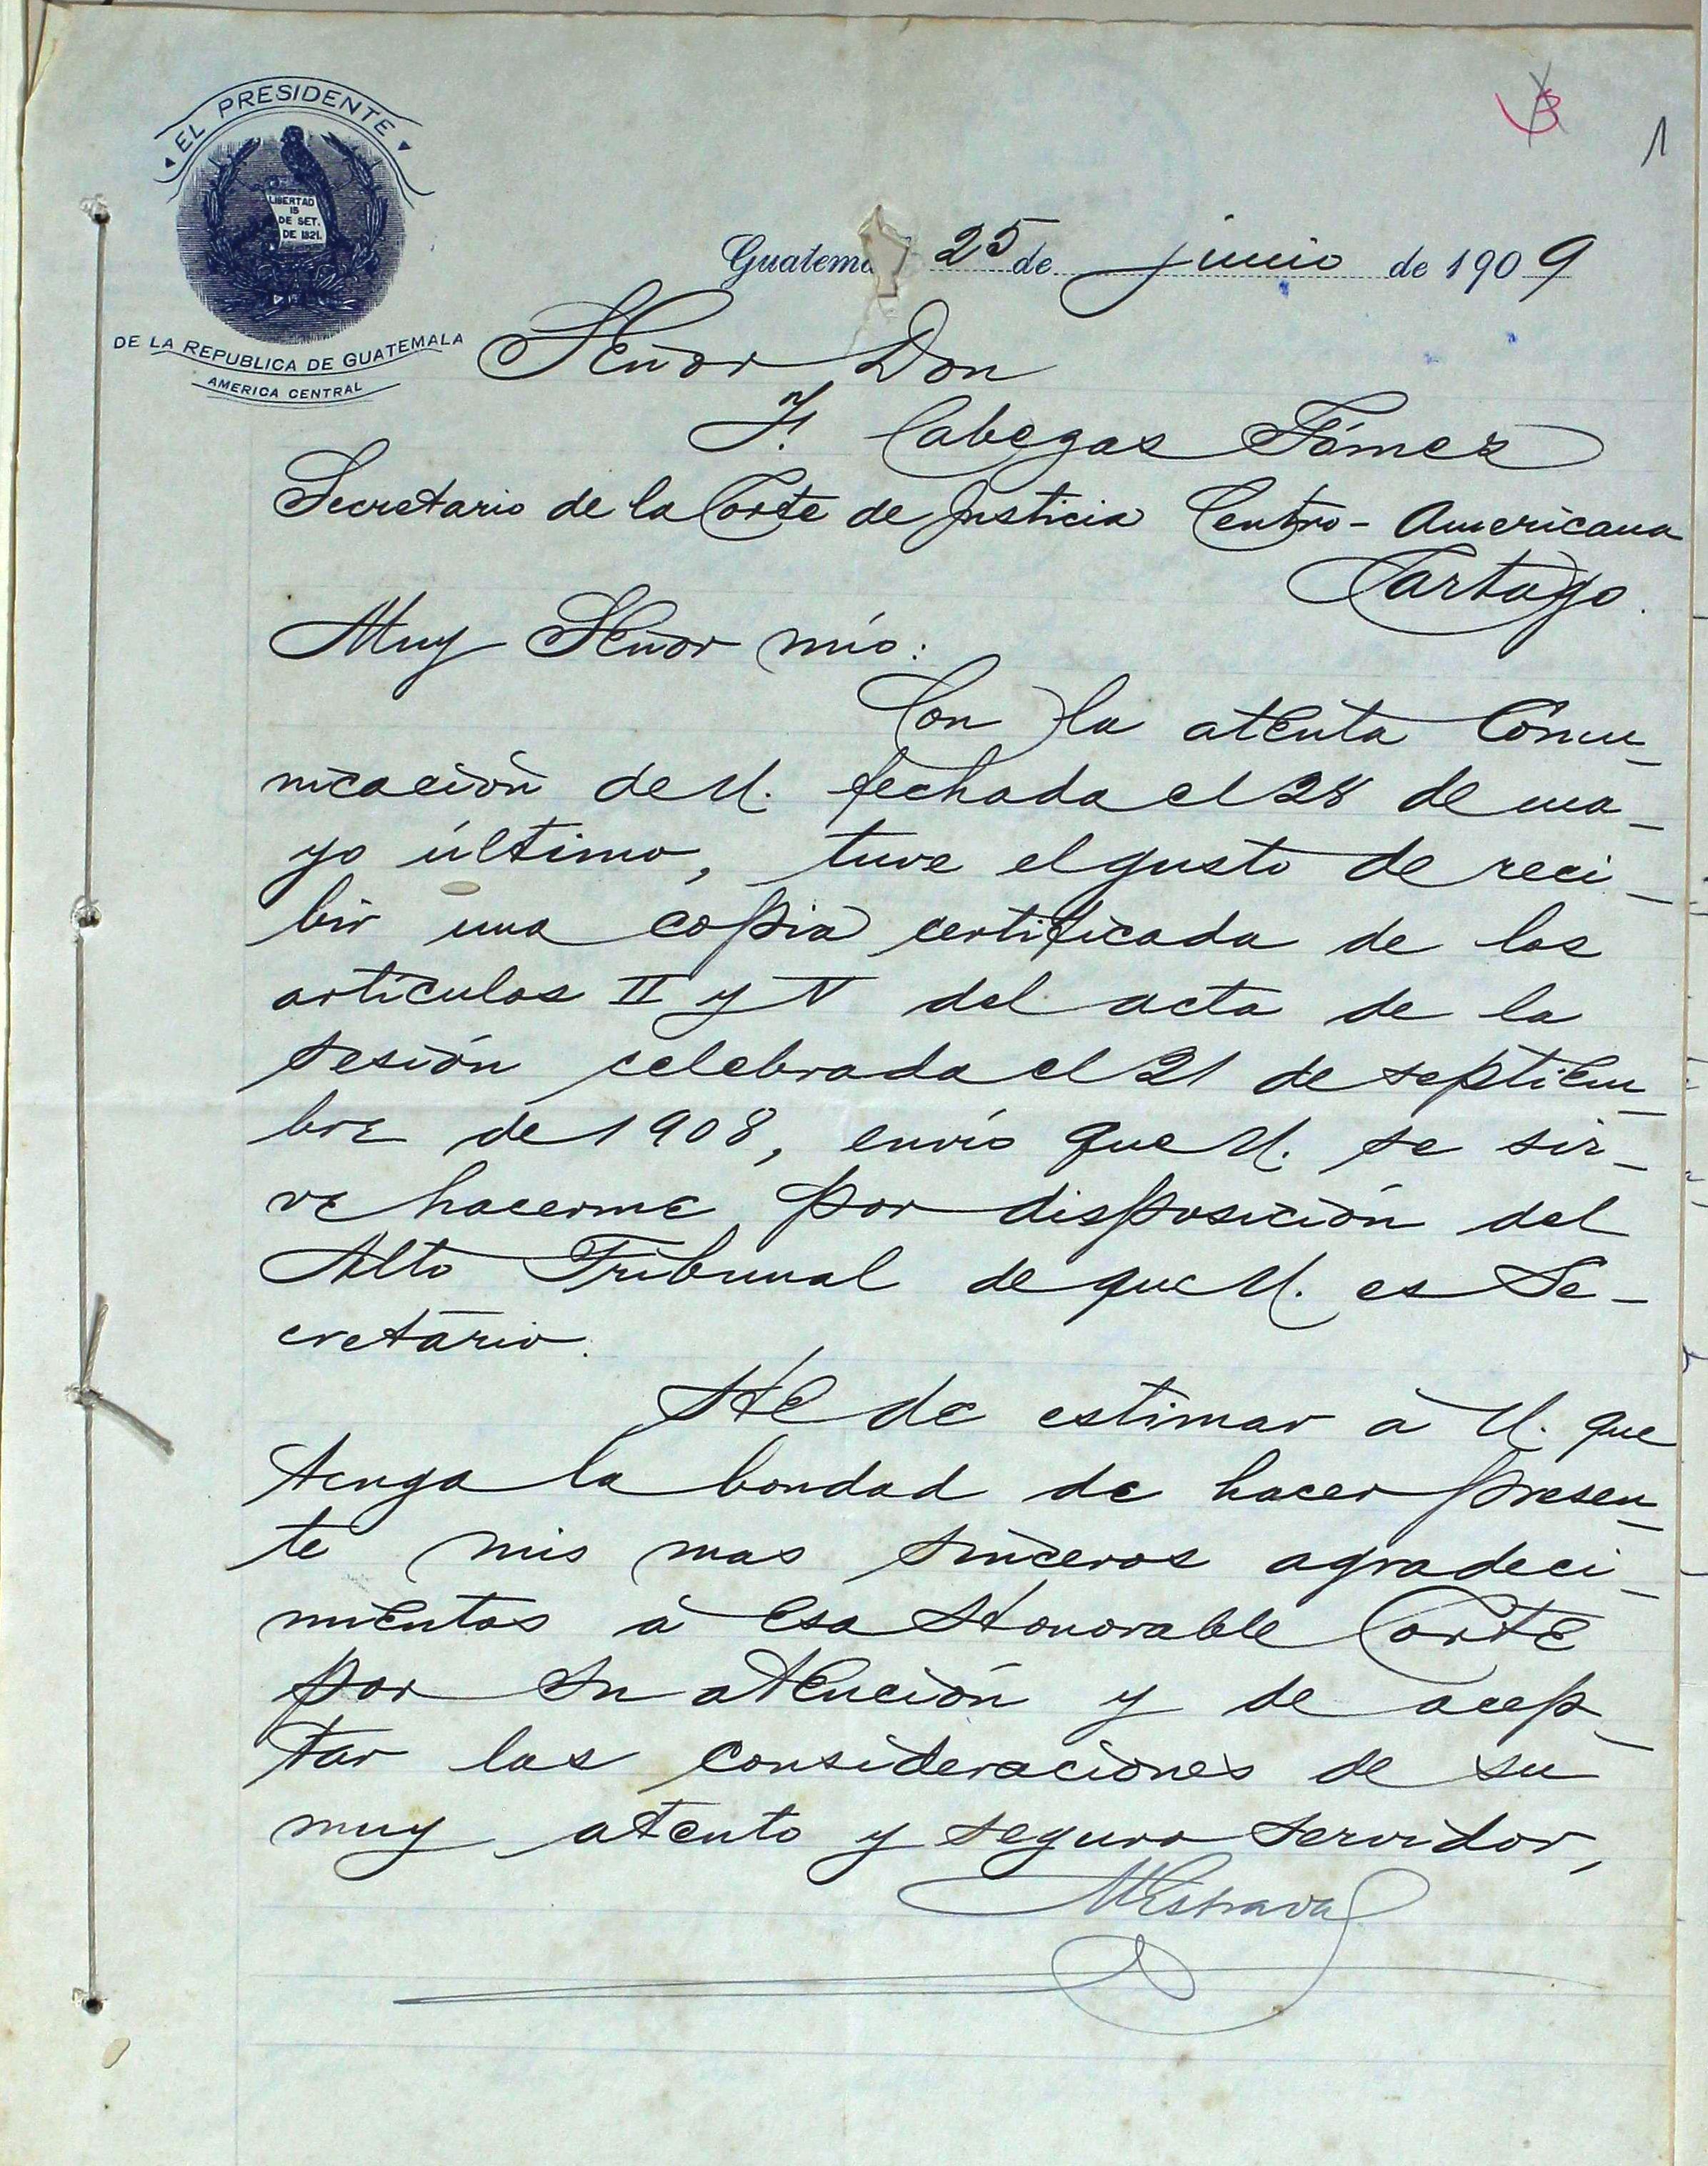 EL PRESIDENTE
LIBERTAD
15
DE SET.
DE 1821.
DE LA REPUBLICA DE GUATEMALA
AMERICA CENTRAL
3
1
Guatema 25 de junio de 1909
Señor Don
Cabezas Gómez
Secretario de la Corte de Justicia Centro-Americana
Cartago.
Muy Señor mío:
Con la atenta Comu-
nicación de U. fechada el 28 de ma-
yo último, tuve el gusto de reci-
bir una copia certificada de los
artículos II y V del acta de la
sesión celebrada el 21 de septiem-
bre de 1908, envío que U. se sir-
ve hacerme por disposición del
Alto Tribunal de que U. es Se-
cretario.
He de estimar á U. que
tenga la bondad de hacer presen-
te mis mas sinceros agradeci-
mientos á esa Honorable Corte
por su atención y de acep-
tar las consideraciones de su
muy atento y seguro servidor,
MEstrada